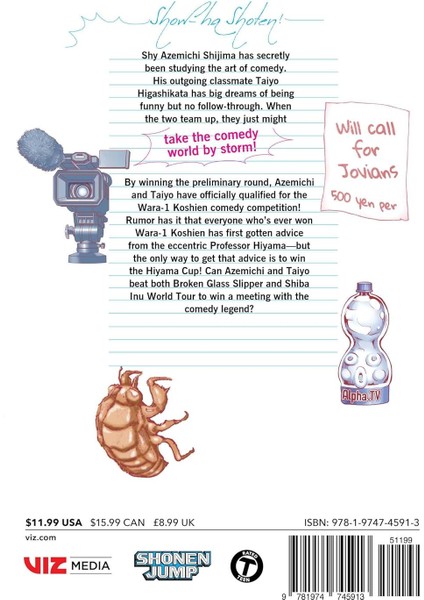 Show-ha Shoten!
Shy Azemichi Shijima has secretly
been studying the art of comedy.
His outgoing classmate Taiyo
Higashikata has big dreams of being
funny but no follow-through. When
the two team up, they just might
take the comedy
world by storm!
Will call
for
Jovians
500 yen per
By winning the preliminary round, Azemichi
and Taiyo have officially qualified for the
Wara-1 Koshien comedy competition!
Rumor has it that everyone who's ever won
Wara-1 Koshien has first gotten advice
from the eccentric Professor Hiyama—but
the only way to get that advice is to win
the Hiyama Cup! Can Azemichi and Taiyo
beat both Broken Glass Slipper and Shiba
Inu World Tour to win a meeting with the
comedy legend?
Alpha TV
$11.99 USA $15.99 CAN £8.99 UK
ISBN: 978-1-9747-4591-3
viz.com
51199
VIZ MEDIA
SHONEN
JUMP
RATED
T
TEEN
9 781974 745913